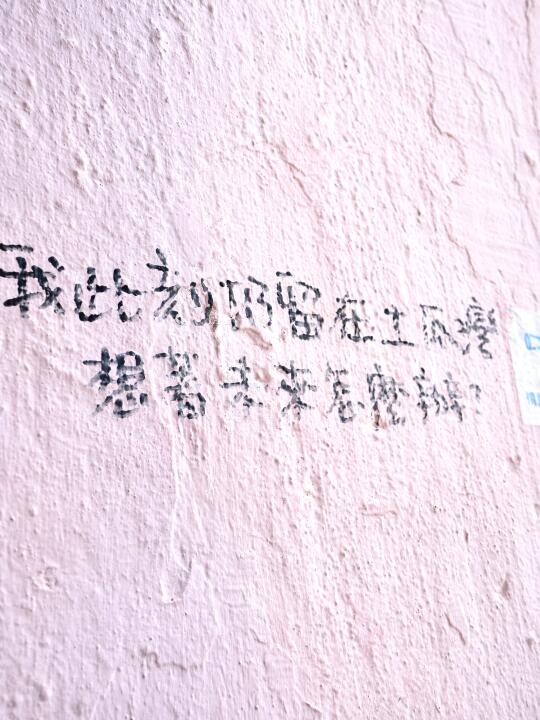 我此刻仍留在土瓜灣
想着未來怎麼辦?